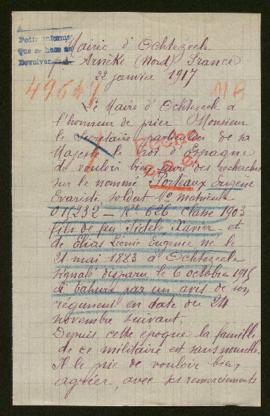 Pedir informes
Que se hace en
Devolver
Mairie d'Ochtezeele
par Arnèke (Nord) France
22 janvier 1917
49641
Le Maire d'Ochtezeele a
l'honneur de prier Monsieur
le Secrétaire particulier de sa
Majesté le Roi d'Espagne
de vouloir bien faire des recherches
sur le nommé Eugène
Evariste, soldat 2e
classe 1903
fils de feu Fidèle Xavier et
de Eugénie né le
21 mai 1883 à Ochtezeele
signalé disparu le 6 octobre 1915
à Tahure par un avis de son
régiment en date du 24
novembre suivant.
Depuis cette époque la famille
de ce militaire est sans nouvelle.
Il le prie de vouloir bien
agréer, avec ses remerciements